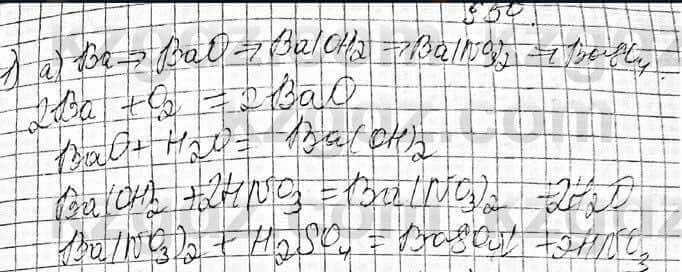 550.
1) а) Ba → BaO → Ba(OH)2 → Ba(NO3)2 → BaSO4.
2Ba + O2 = 2BaO
BaO + H2O = Ba(OH)2
Ba(OH)2 + 2HNO3 = Ba(NO3)2 + 2H2O
Ba(NO3)2 + H2SO4 = BaSO4↓ + 2HNO3